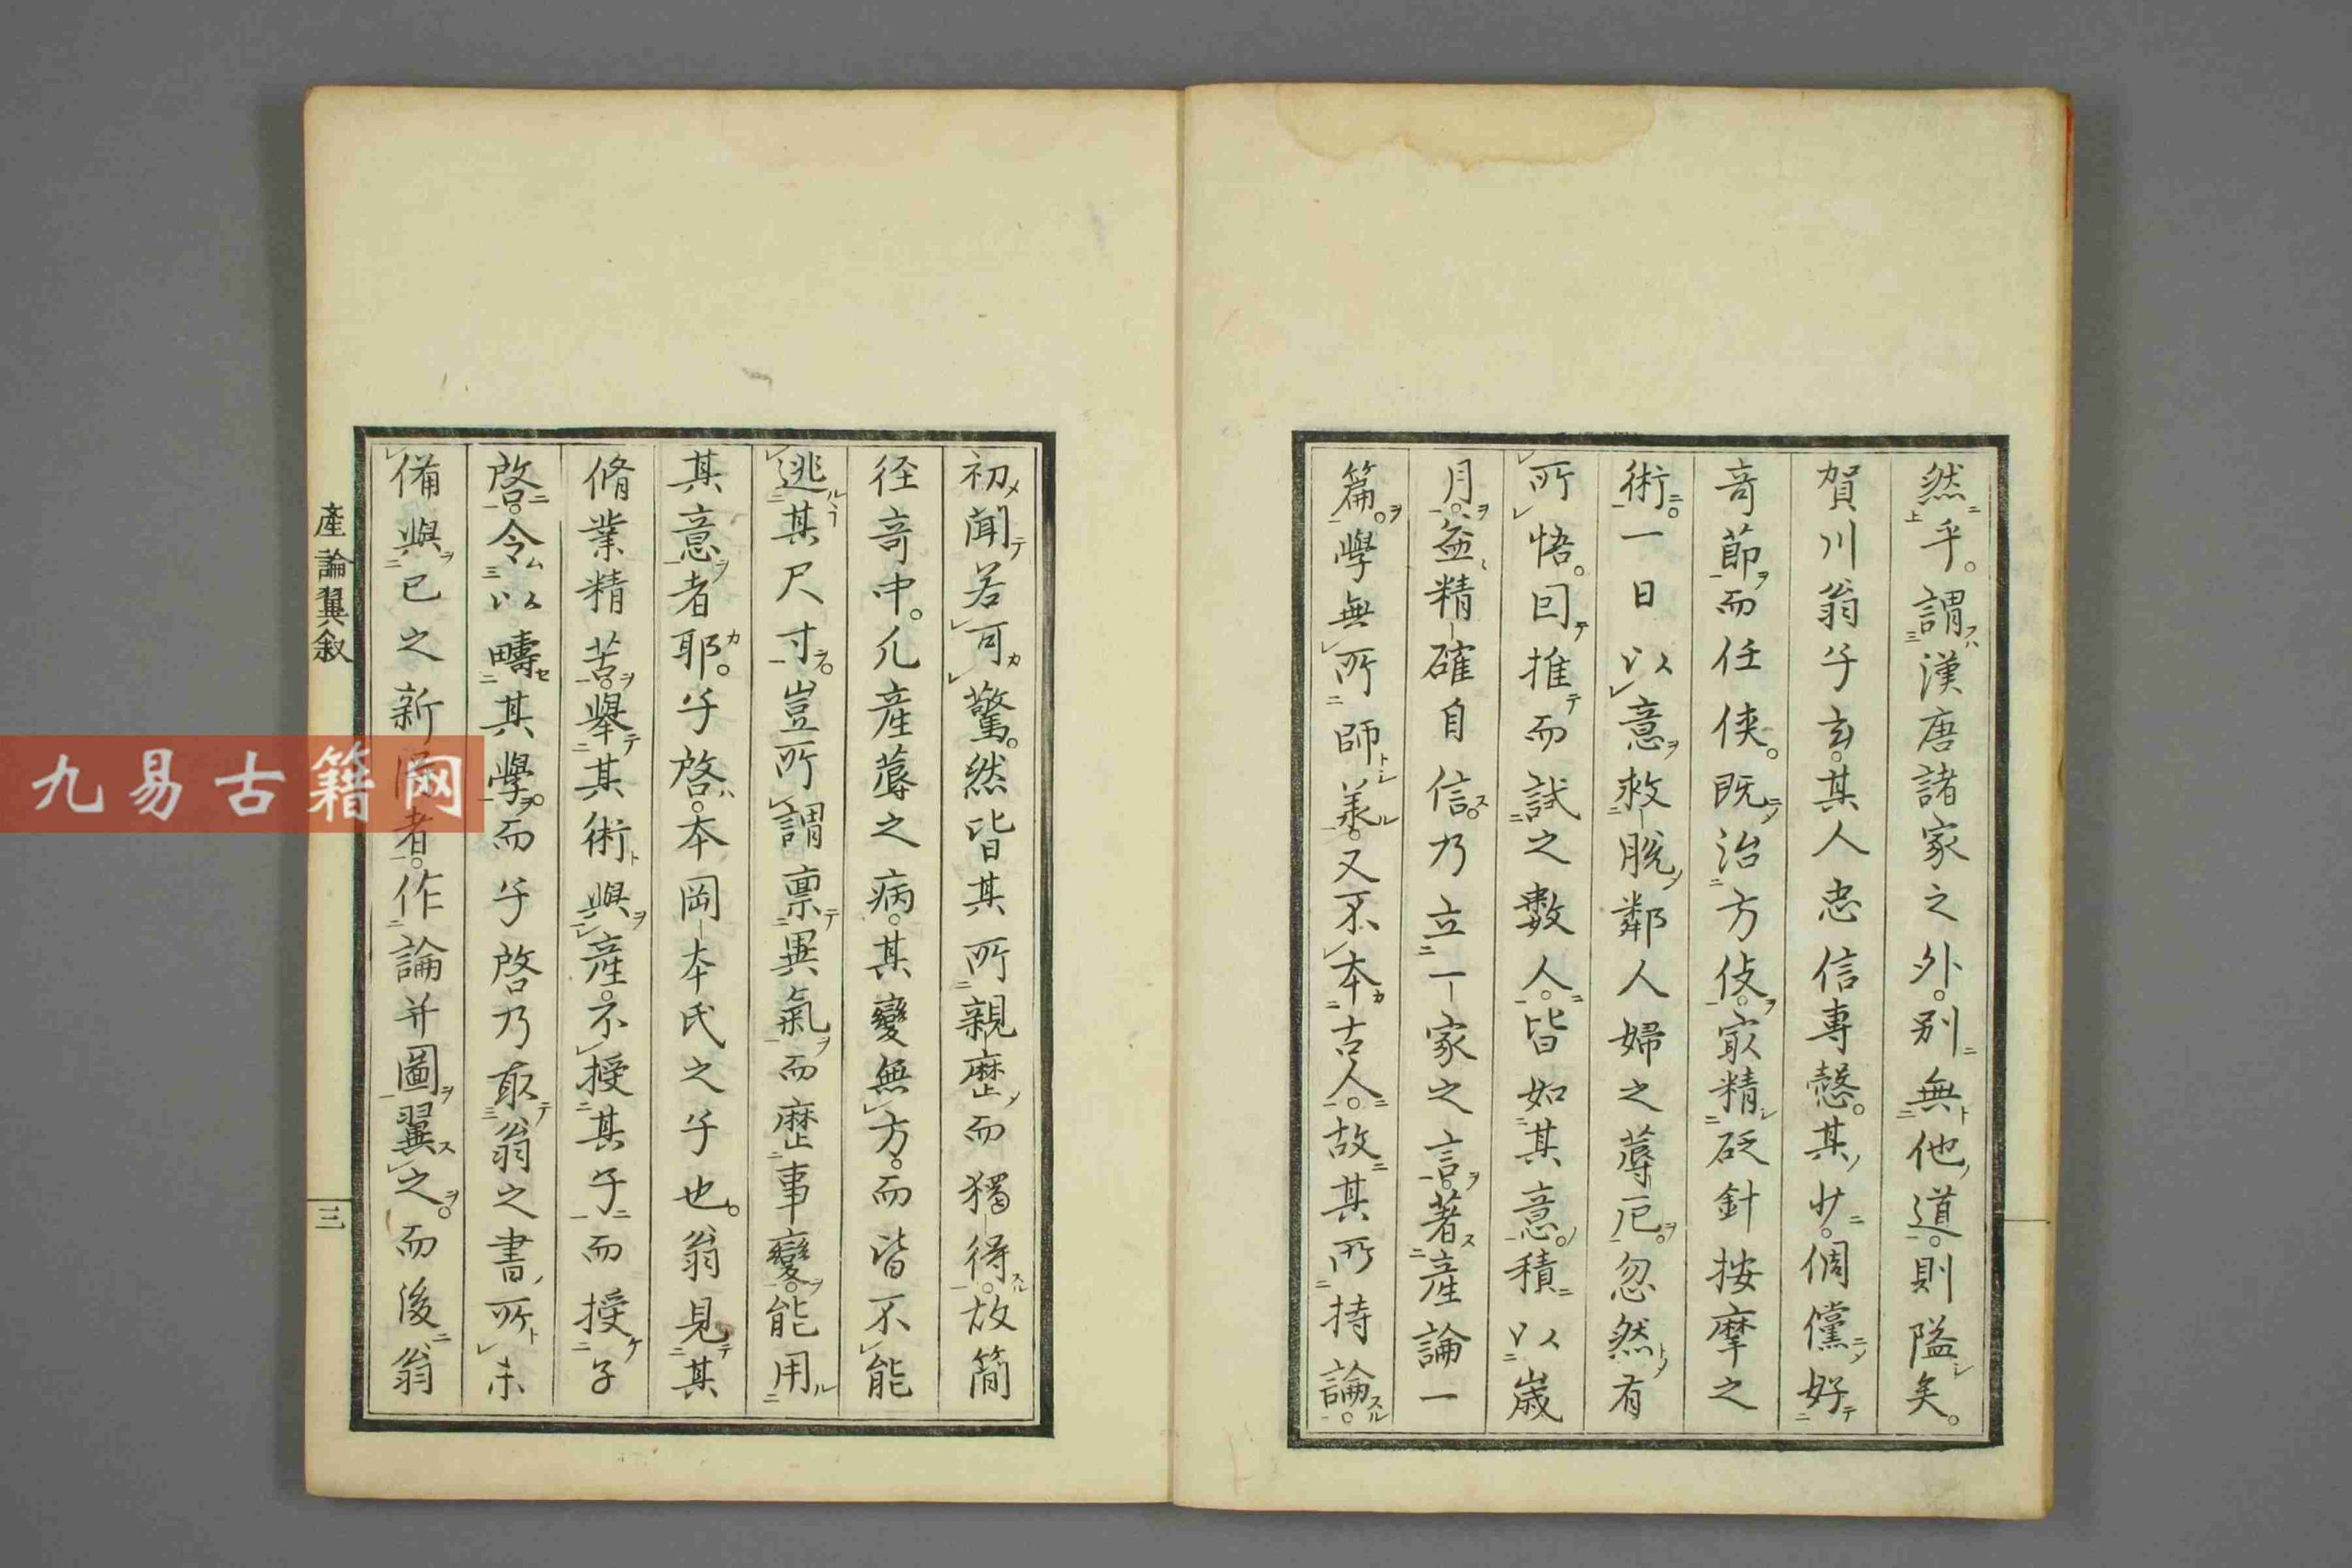 然乎。謂漢唐諸家之外。别無他道。則隘矣。
賀川翁子玄。其人忠信專愨。其少。倜儻好
竒節而任侠。既治方伎。㝡精砭針按摩之
術。一日以意救脱鄰人婦之蓐厄。忽然有
所悟。因推而試之數人。皆如其意。積以歳
月。益精確自信。乃立一家之言。著產論一
篇。學無所師羕。又不本古人。故其所持論。
初聞若可驚。然皆其所親歴而獨得。故簡
径竒中。凡產蓐之病。其變無方。而皆不能
逃其尺寸。豈所謂禀異氣而歴事變。能用
其意者耶。子啓。本岡本氏之子也。翁見其
脩業精苦。舉其術與產。不授其子而授子
啓。令以疇其學。而子啓乃取翁之書所未
備與已之新者。作論并圖翼之。而後翁
產論翼叙
三
九易古籍网